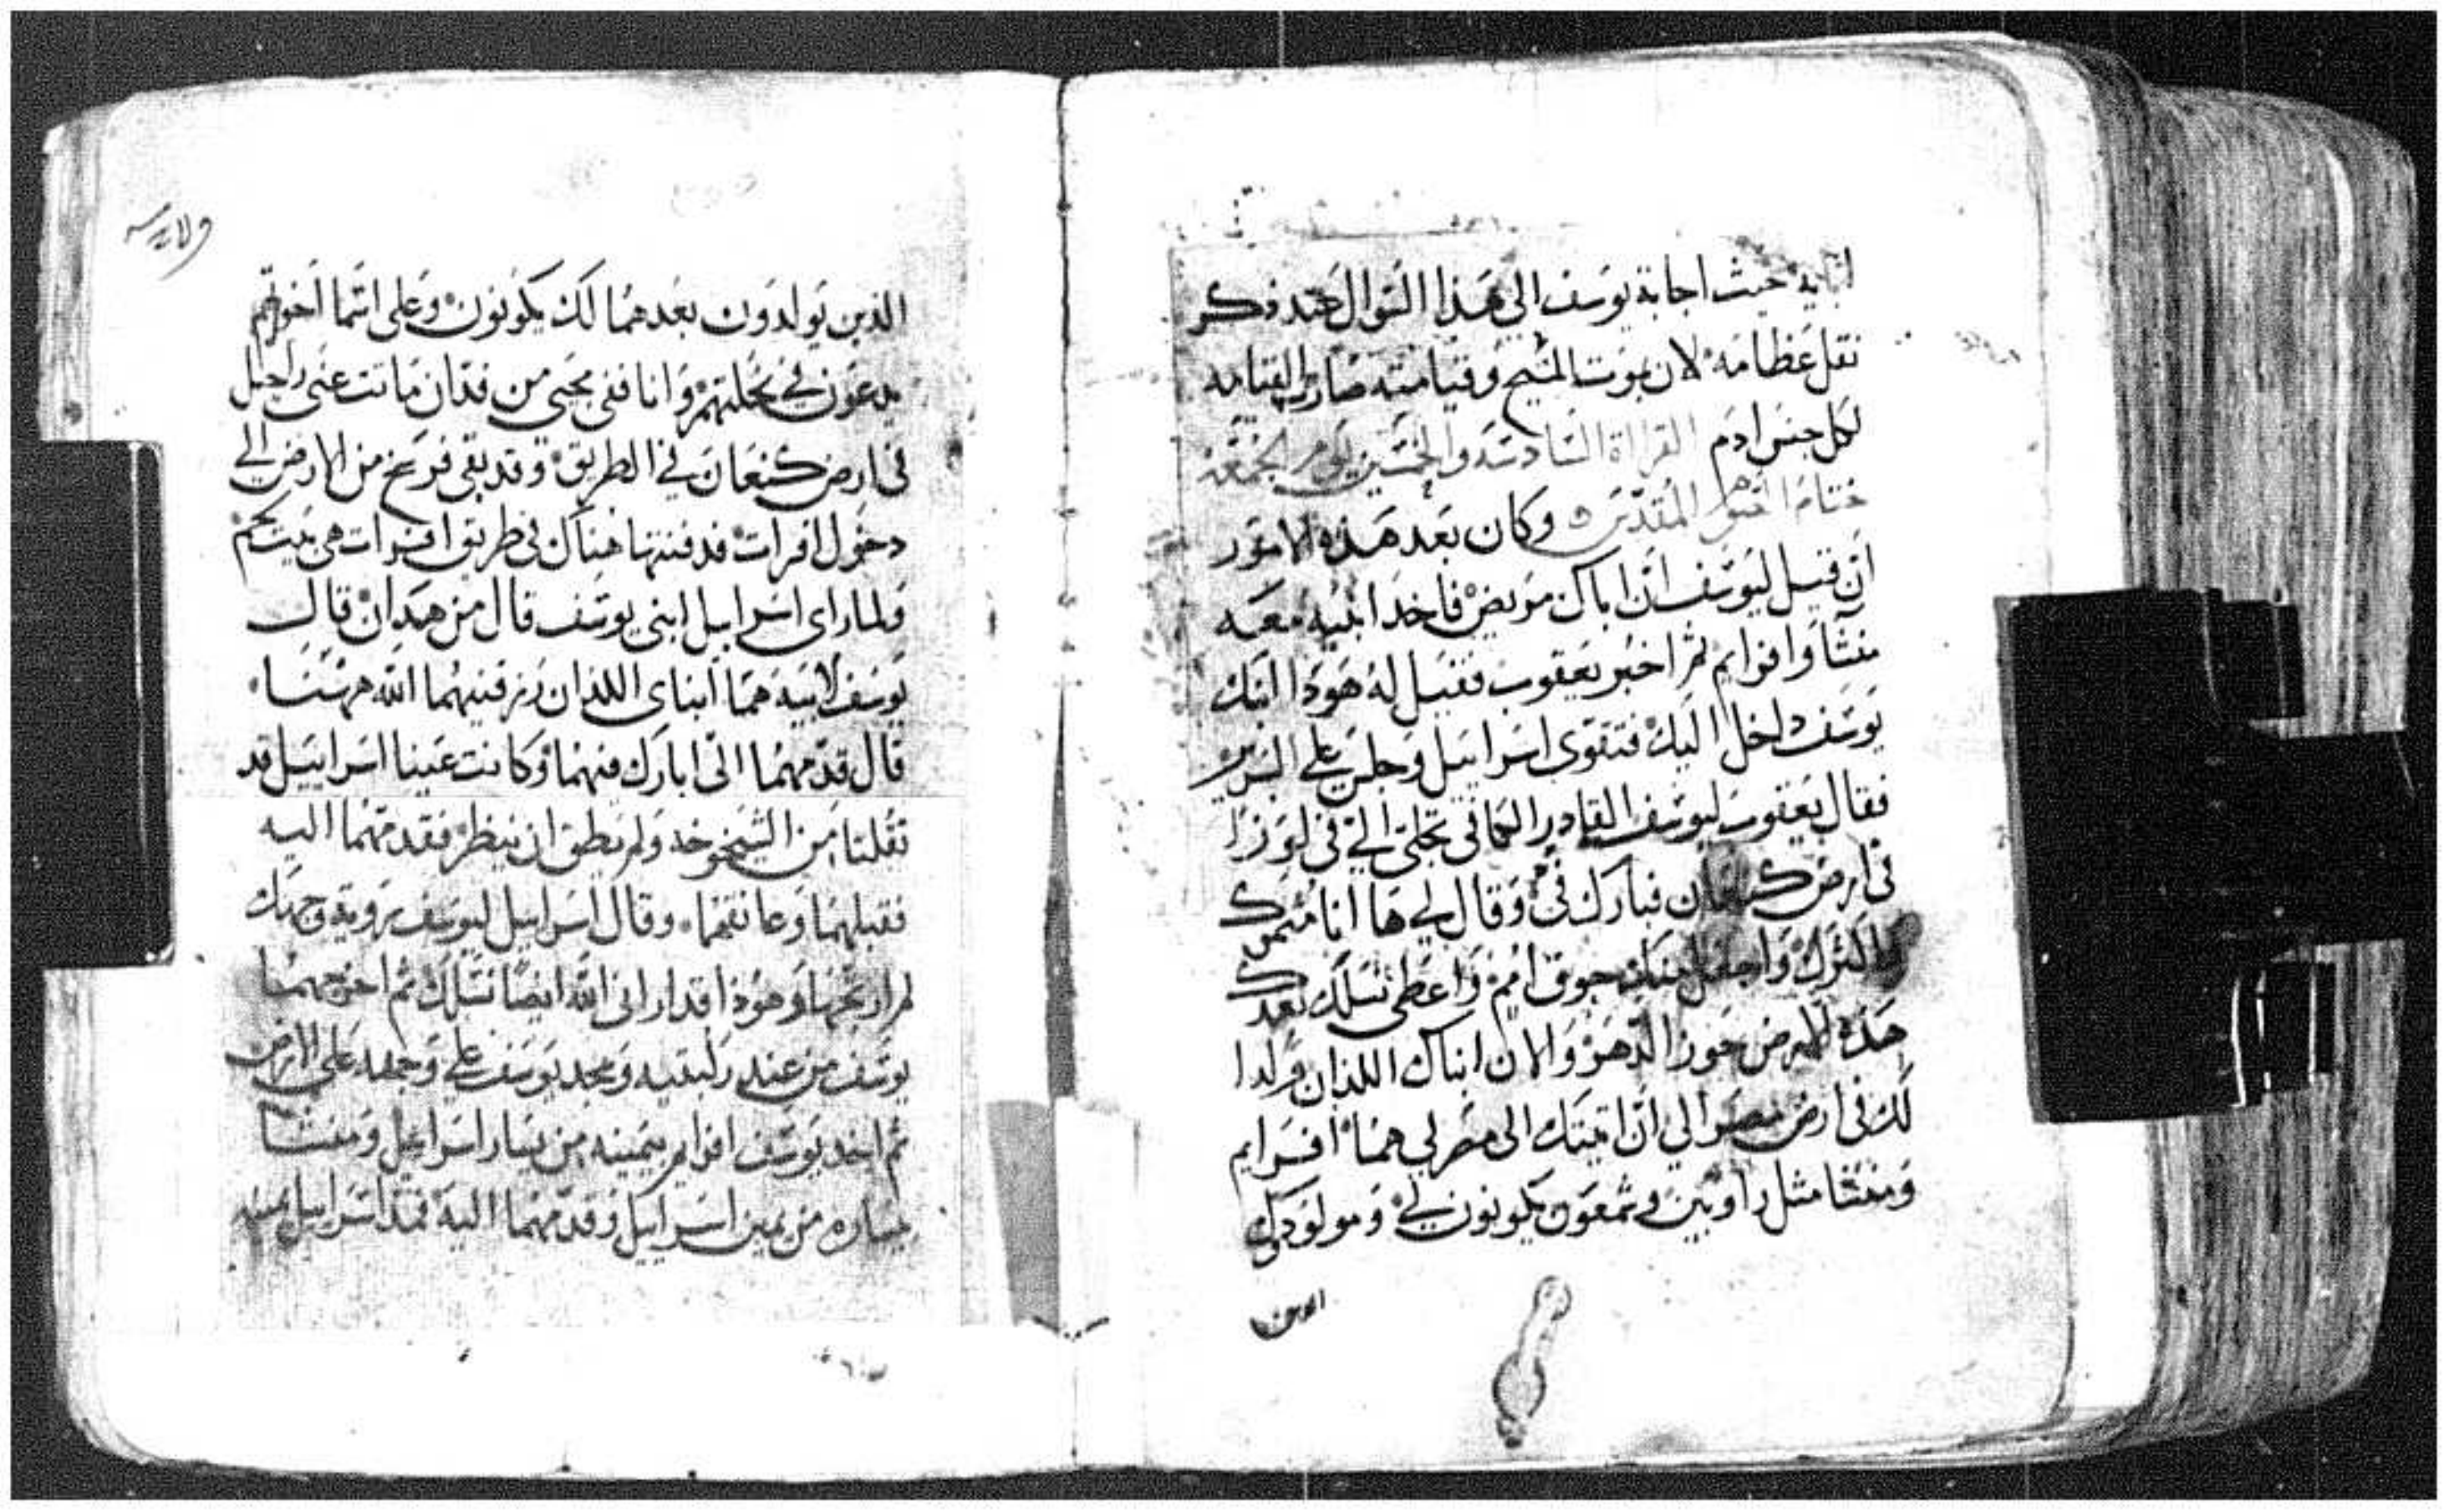 حيث اجابة يوسف الى هذا السوال عند ذكر
نقل عظامه لان بموت المسيح وقيامته صارت القيامه
لكل جنس ادم القراة السادسه والخمسين ليوم الجمعه
ختام الصوم المقدس وكان بعد هذه الامور
ان قيل ليوسف ان اباك مريض فاخد ابنيه معه
منشا وافرايم ثم اخبر يعقوب فقيل له هودا ابنك
يوسف داخل اليك فتقوى اسراييل وجلس على السرير
فقال يعقوب ليوسف القادر الكافي تجلى الي في لوزا
في ارض كنعان فبارك في وقال لي ها انا مثمرك
واكثرك واجعل منك جوق امم واعطي نسلك بعدك
هذه الارض حوز الدهر والان ابناك اللذان ولدا
لك في ارض مصر الي ان اتيتك الى مصر لي هما افرايم
ومنشا مثل راوبين وشمعون يكونون لي ومولودك
الدين
الذين يولدون بعدهما لك يكونون وعلى اسما اخوتهم
يدعون في نحلتهم وانا ففي مجي من فدان ماتت عني راحيل
في ارض كنعان في الطريق وقد بقي فرسخ من الارض الي
دخول افرات فدفنتها هناك في طريق افرات هي بيت لحم
ولما راى اسراييل ابني يوسف قال من هدان قال
يوسف لابيه هما ابناي اللذان رزقنيهما الله ههنا
قال قدمهما الي ابارك فيهما وكانت عينا اسراييل قد
ثقلتا من الشيخوخه ولم يطق ان ينظر فقدمهما اليه
فقبلهما وعانقهما وقال اسراييل ليوسف رويه وجهك
لم ارتجها وهوذا قد اراني الله ايضا نسلك ثم اخرجهما
يوسف من عند ركبتيه وسجد يوسف على وجهه على الارض
ثم اخد يوسف افرايم بيمينه من يسار اسراييل ومنشا
بيساره من يمين اسراييل وقدمهما اليه فمد اسراييل يمينه